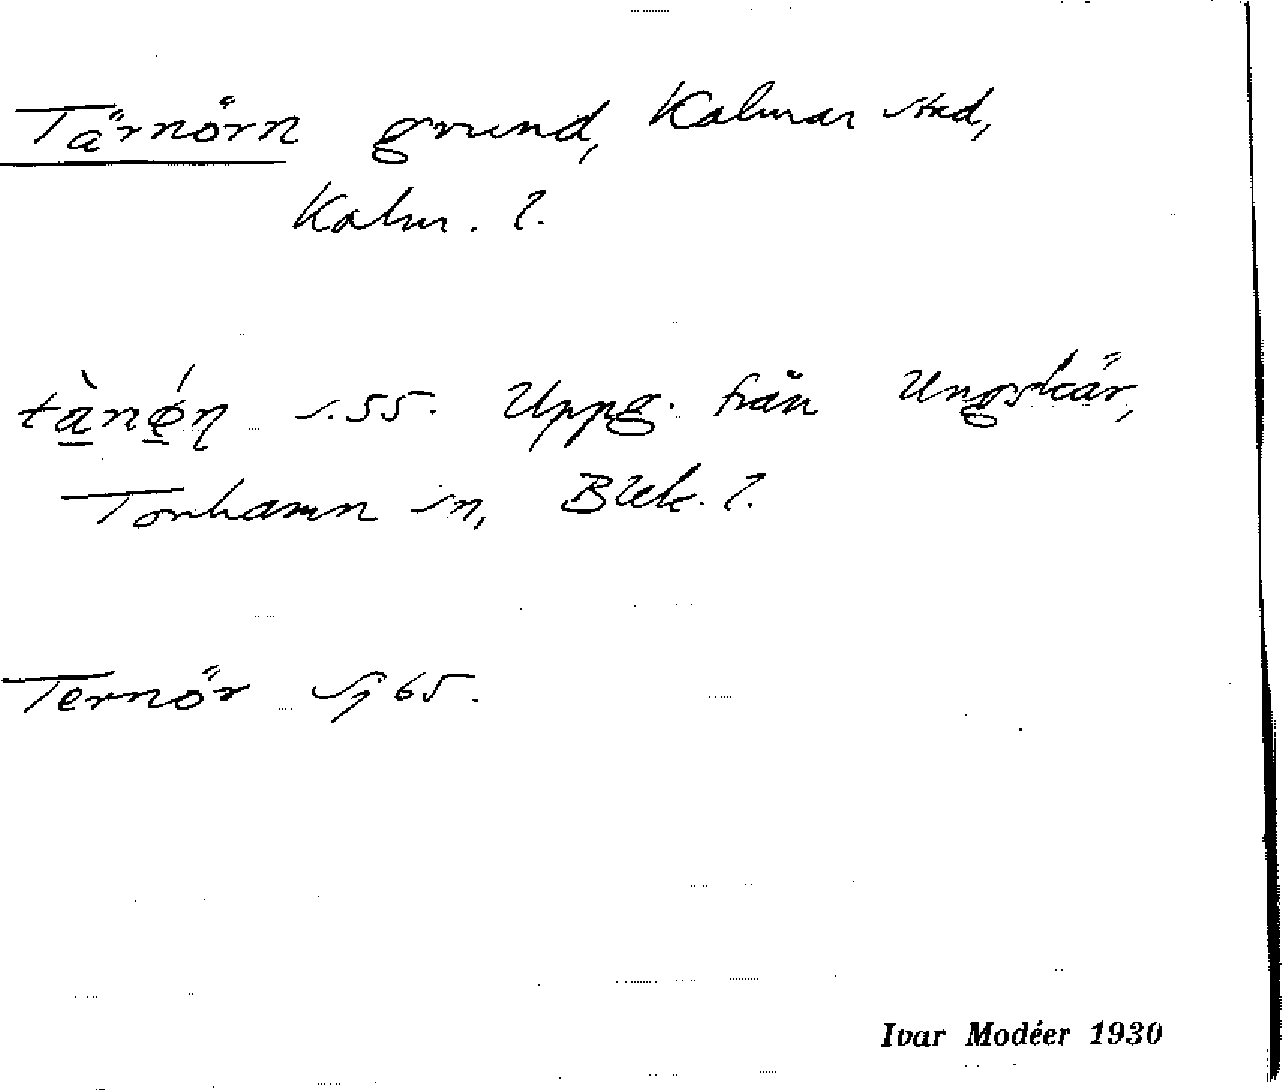 Tärnörn grund, Kalmar stad,
Kalm. l.
tà̱nǿ̱n s. 55. Uppg. från Ungskär,
Torhamn sn, Blek. l.
Ternör Sj 65.
Ivar Modéer 1930